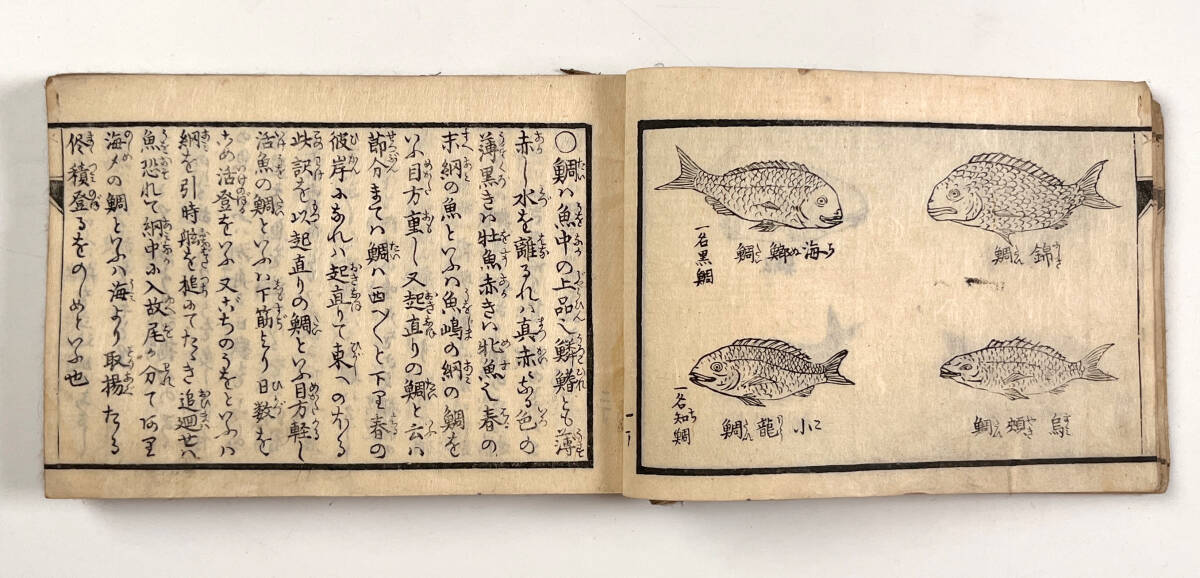 錦鯛
海鯽鯛
一名黒鯛
烏頬鯛
小龍鯛
一名知鯛
○鯛ハ魚中の上品也鱗鰭とも薄
赤し水を離るれハ真赤なる色の
薄黒きハ牡魚赤きハ牝魚也春の
末納の魚といふハ魚嶋の納の鯛を
いふ目方重し又起直りの鯛と云ハ
節分まてハ鯛ハ西へ〱と下り春の
彼岸になれハ起直りて東へのぼる
此訳を以起直りの鯛といふ目方軽し
活魚の鯛といふハ下筋より日数を
こめ活登をいふ又ぶちのうをといふハ
網を引時舷を槌にてたゝき追廻せハ
魚恐れて網中に入故尾か分てあり
海〆の鯛といふハ海より取揚たる
侭積登るをのしめといふ也